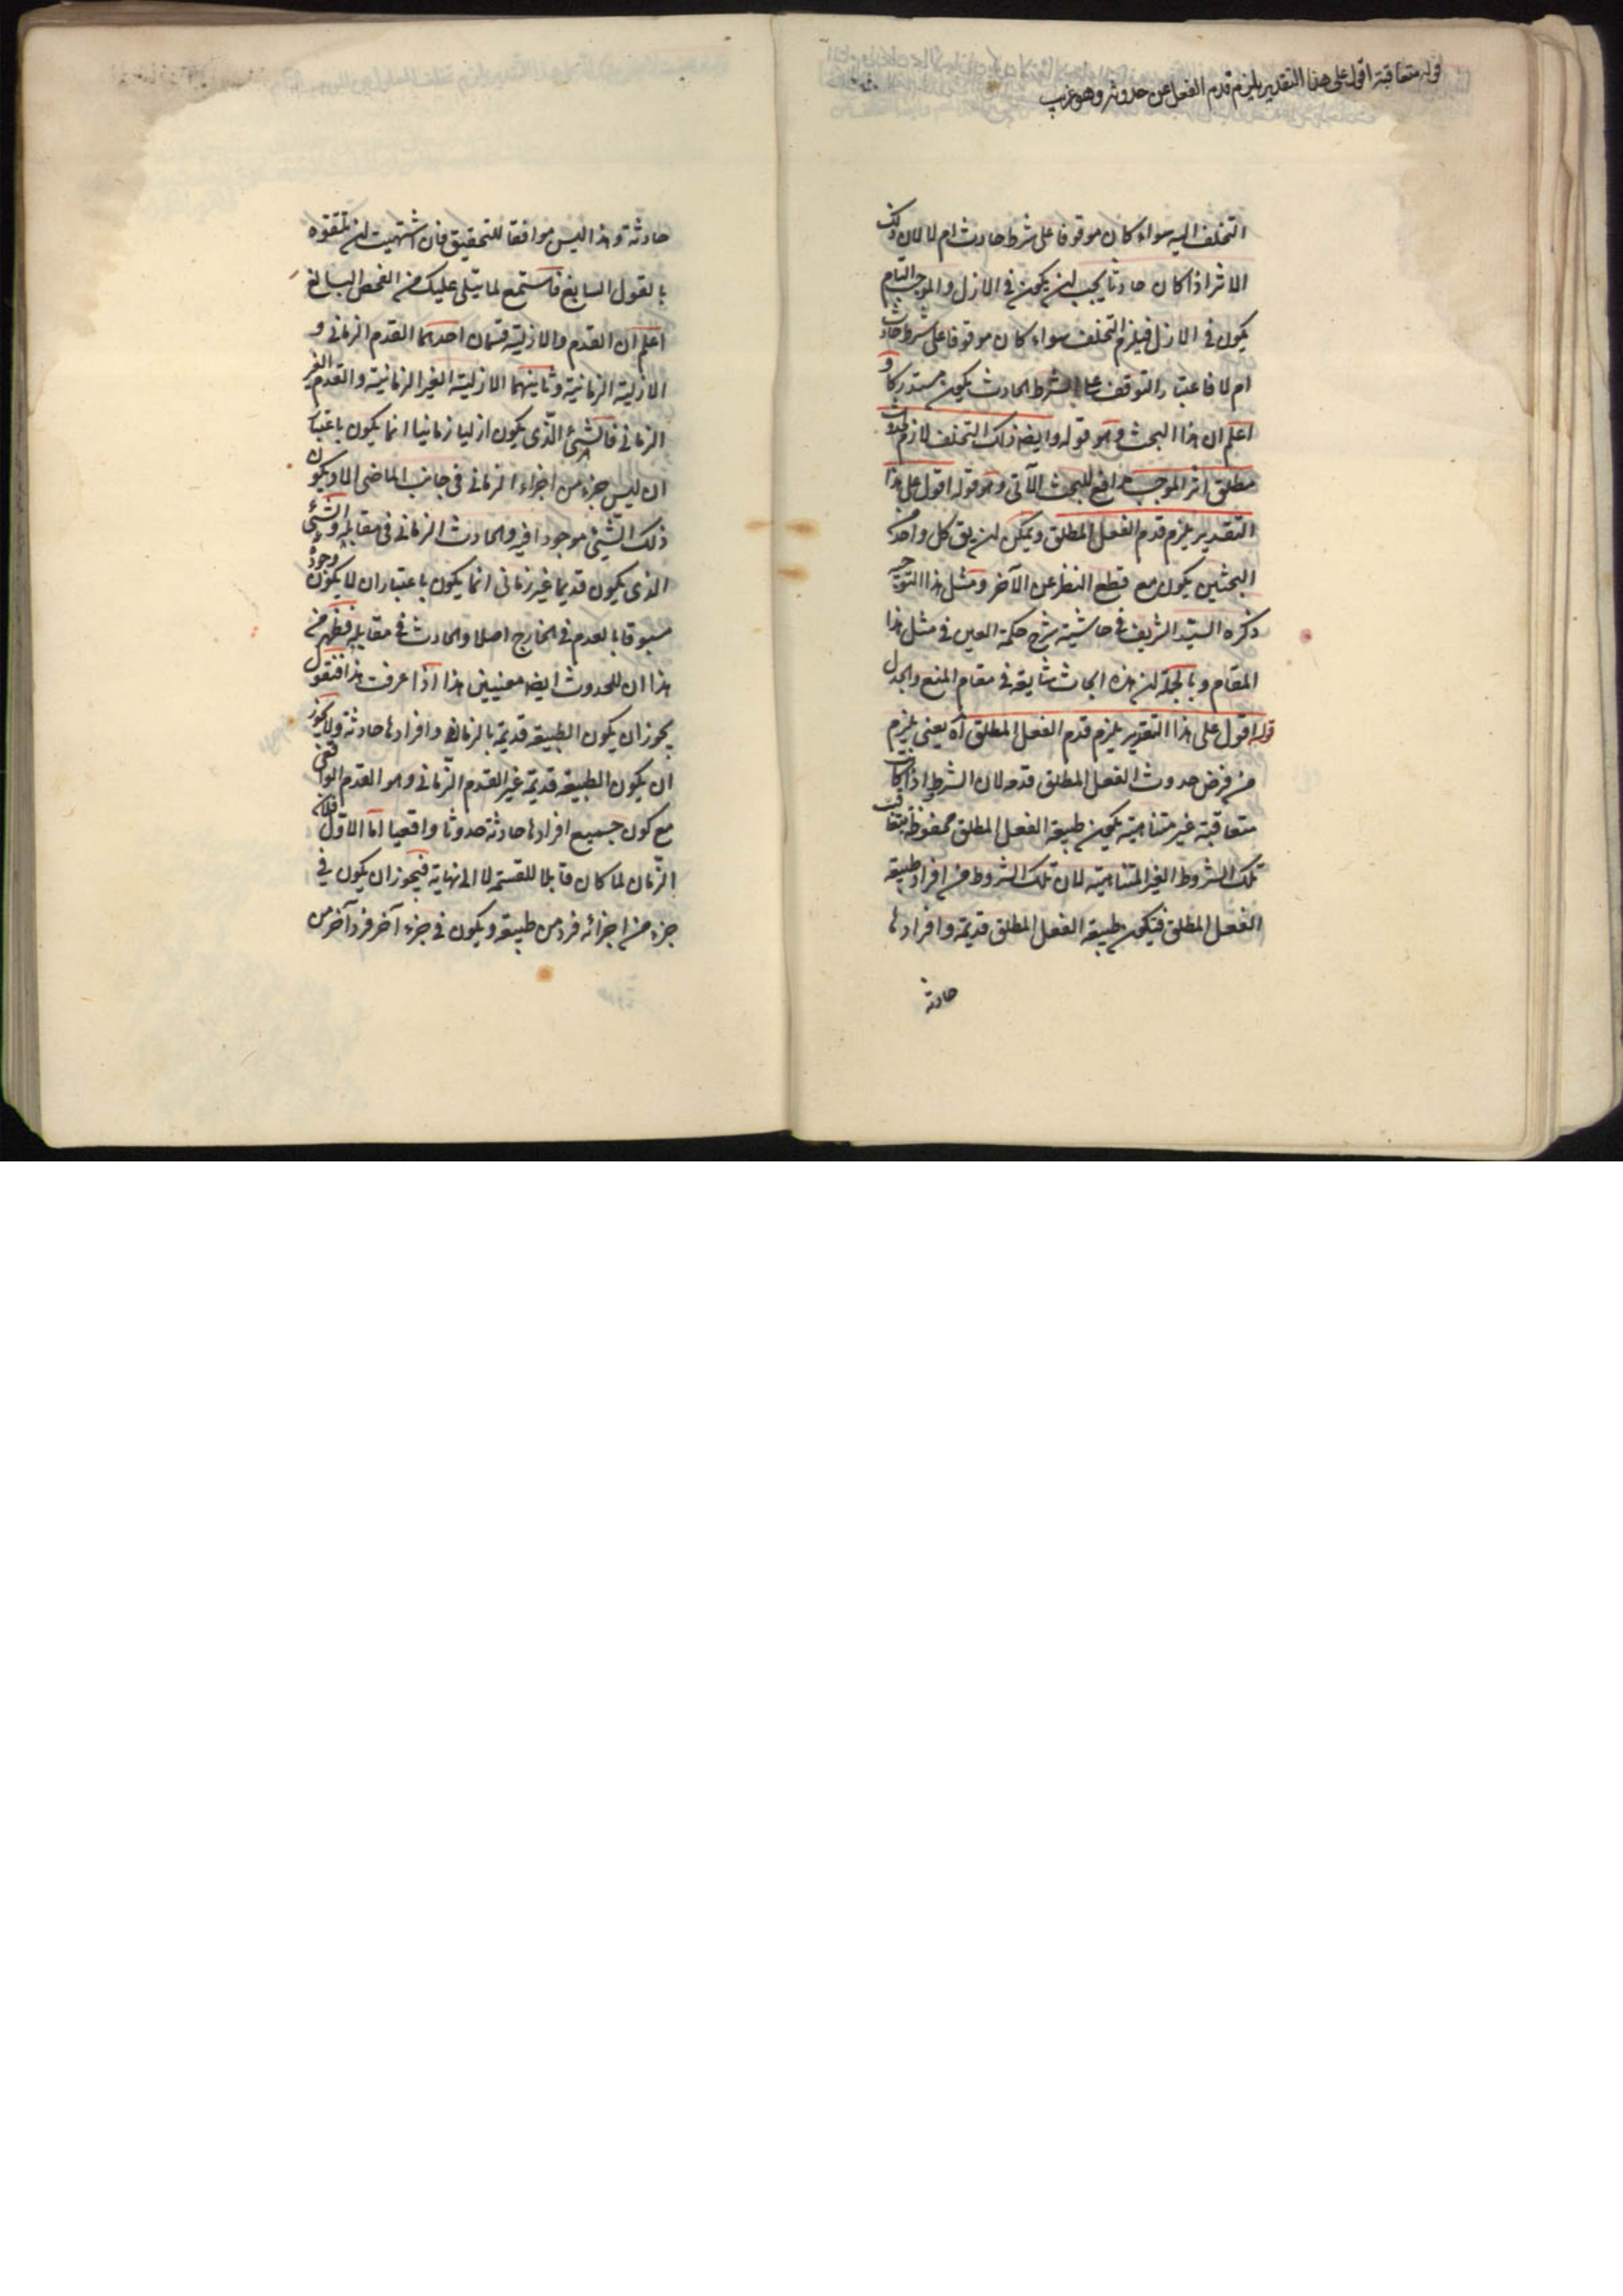 قوله متعاقبة اقول على هذا التقدير يلزم قدم الفعل عن حدوثه وهو غريب
التخلف اليه سواء كان موقوفا على شرط حادث ام لا لان ذلك
الاثر اذا كان حادثا يجب ان يكون في الازل والموجب التام
يكون في الازل فيلزم التخلف سواء كان موقوفا على شرط حادث
ام لا فاعتبار التوقف على الشرط الحادث يكون مستدركا و
اعلم ان هذا البحث وهو قوله وايضا ذلك التخلف لازم لحدوث
مطلق اثر الموجب مدافع للبحث الآتي وهو قوله اقول على هذا
التقدير يلزم قدم الفعل المطلق ويمكن ان يق كل واحد من
البحثين يكون مع قطع النظر عن الآخر ومثل هذا التوجيه
ذكره السيد الشريف في حاشية شرح حكمة العين في مثل هذا
المقام وبالجملة ان هذه ابحاث شايعة في مقام المنع والجدل
قوله اقول على هذا التقدير يلزم قدم الفعل المطلق آه يعني يلزم
من فرض حدوث الفعل المطلق قدمه لان الشرط اذا كانت
متعاقبة غير متناهية يكون طبيعة الفعل المطلق محفوظة بتعاقب
تلك الشروط الغير المتناهية لان تلك الشروط من افراد طبيعة
الفعل المطلق فيكون طبيعة الفعل المطلق قديمة وافرادها
حادثة
حادثة وهذا ليس موافقا للتحقيق فان اشتهيت ان تتفوه
بالقول السابغ فاستمع لما يتلى عليك من الفحص البالغ
اعلم ان القدم والازلية قسمان احدهما القدم الزماني و
الازلية الزمانية وثانيهما الازلية الغير الزمانية والقدم الغير
الزماني فالشئ الذي يكون ازليا زمانيا انما يكون باعتبار
ان ليس جزء من اجزاء الزماني في جانب الماضي الا ويكون
ذلك الشئ موجودا فيه والحادث الزماني في مقابله والشئ
الذي يكون قديما غير زماني انما يكون باعتبار ان لا يكون وجوده
مسبوقا بالعدم في الخارج اصلا والحادث في مقابله فظهر من
هذا ان للحدوث ايضا معنيين هذا اذا عرفت هذا فنقول
يجوز ان يكون الطبيعة قديمة بالزمان وافرادها حادثة ولا يجوز
ان يكون الطبيعة قديمة غير القدم الزماني وهو القدم الواقعي
مع كون جميع افرادها حادثة حدوثا واقعيا اما الاول فلان
الزمان لما كان قابلا للقسمة لا الى نهاية فيجوز ان يكون في
جزء من اجزائه فرد من طبيعة ويكون في جزء آخر فرد آخر من